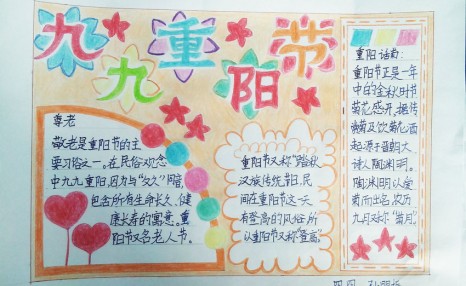 九九重阳节
尊老
敬老是重阳节的主
要习俗之一。在民俗观念
中九九重阳,因为与"久久"同音,
包含所有生命长久、健
康长寿的寓意。重
阳节又名老人节。
重阳节又称"踏秋"
汉族传统节日,民
间在重阳节这一天
有登高的风俗,所
以重阳节又称"登高"。
重阳话菊:
重阳节正是一年
中的金秋时节
菊花盛开,据传
赏菊及饮菊花酒
起源于晋朝大
诗人陶渊明。
陶渊明以爱
菊而出名,农历
九月又称"菊月"。